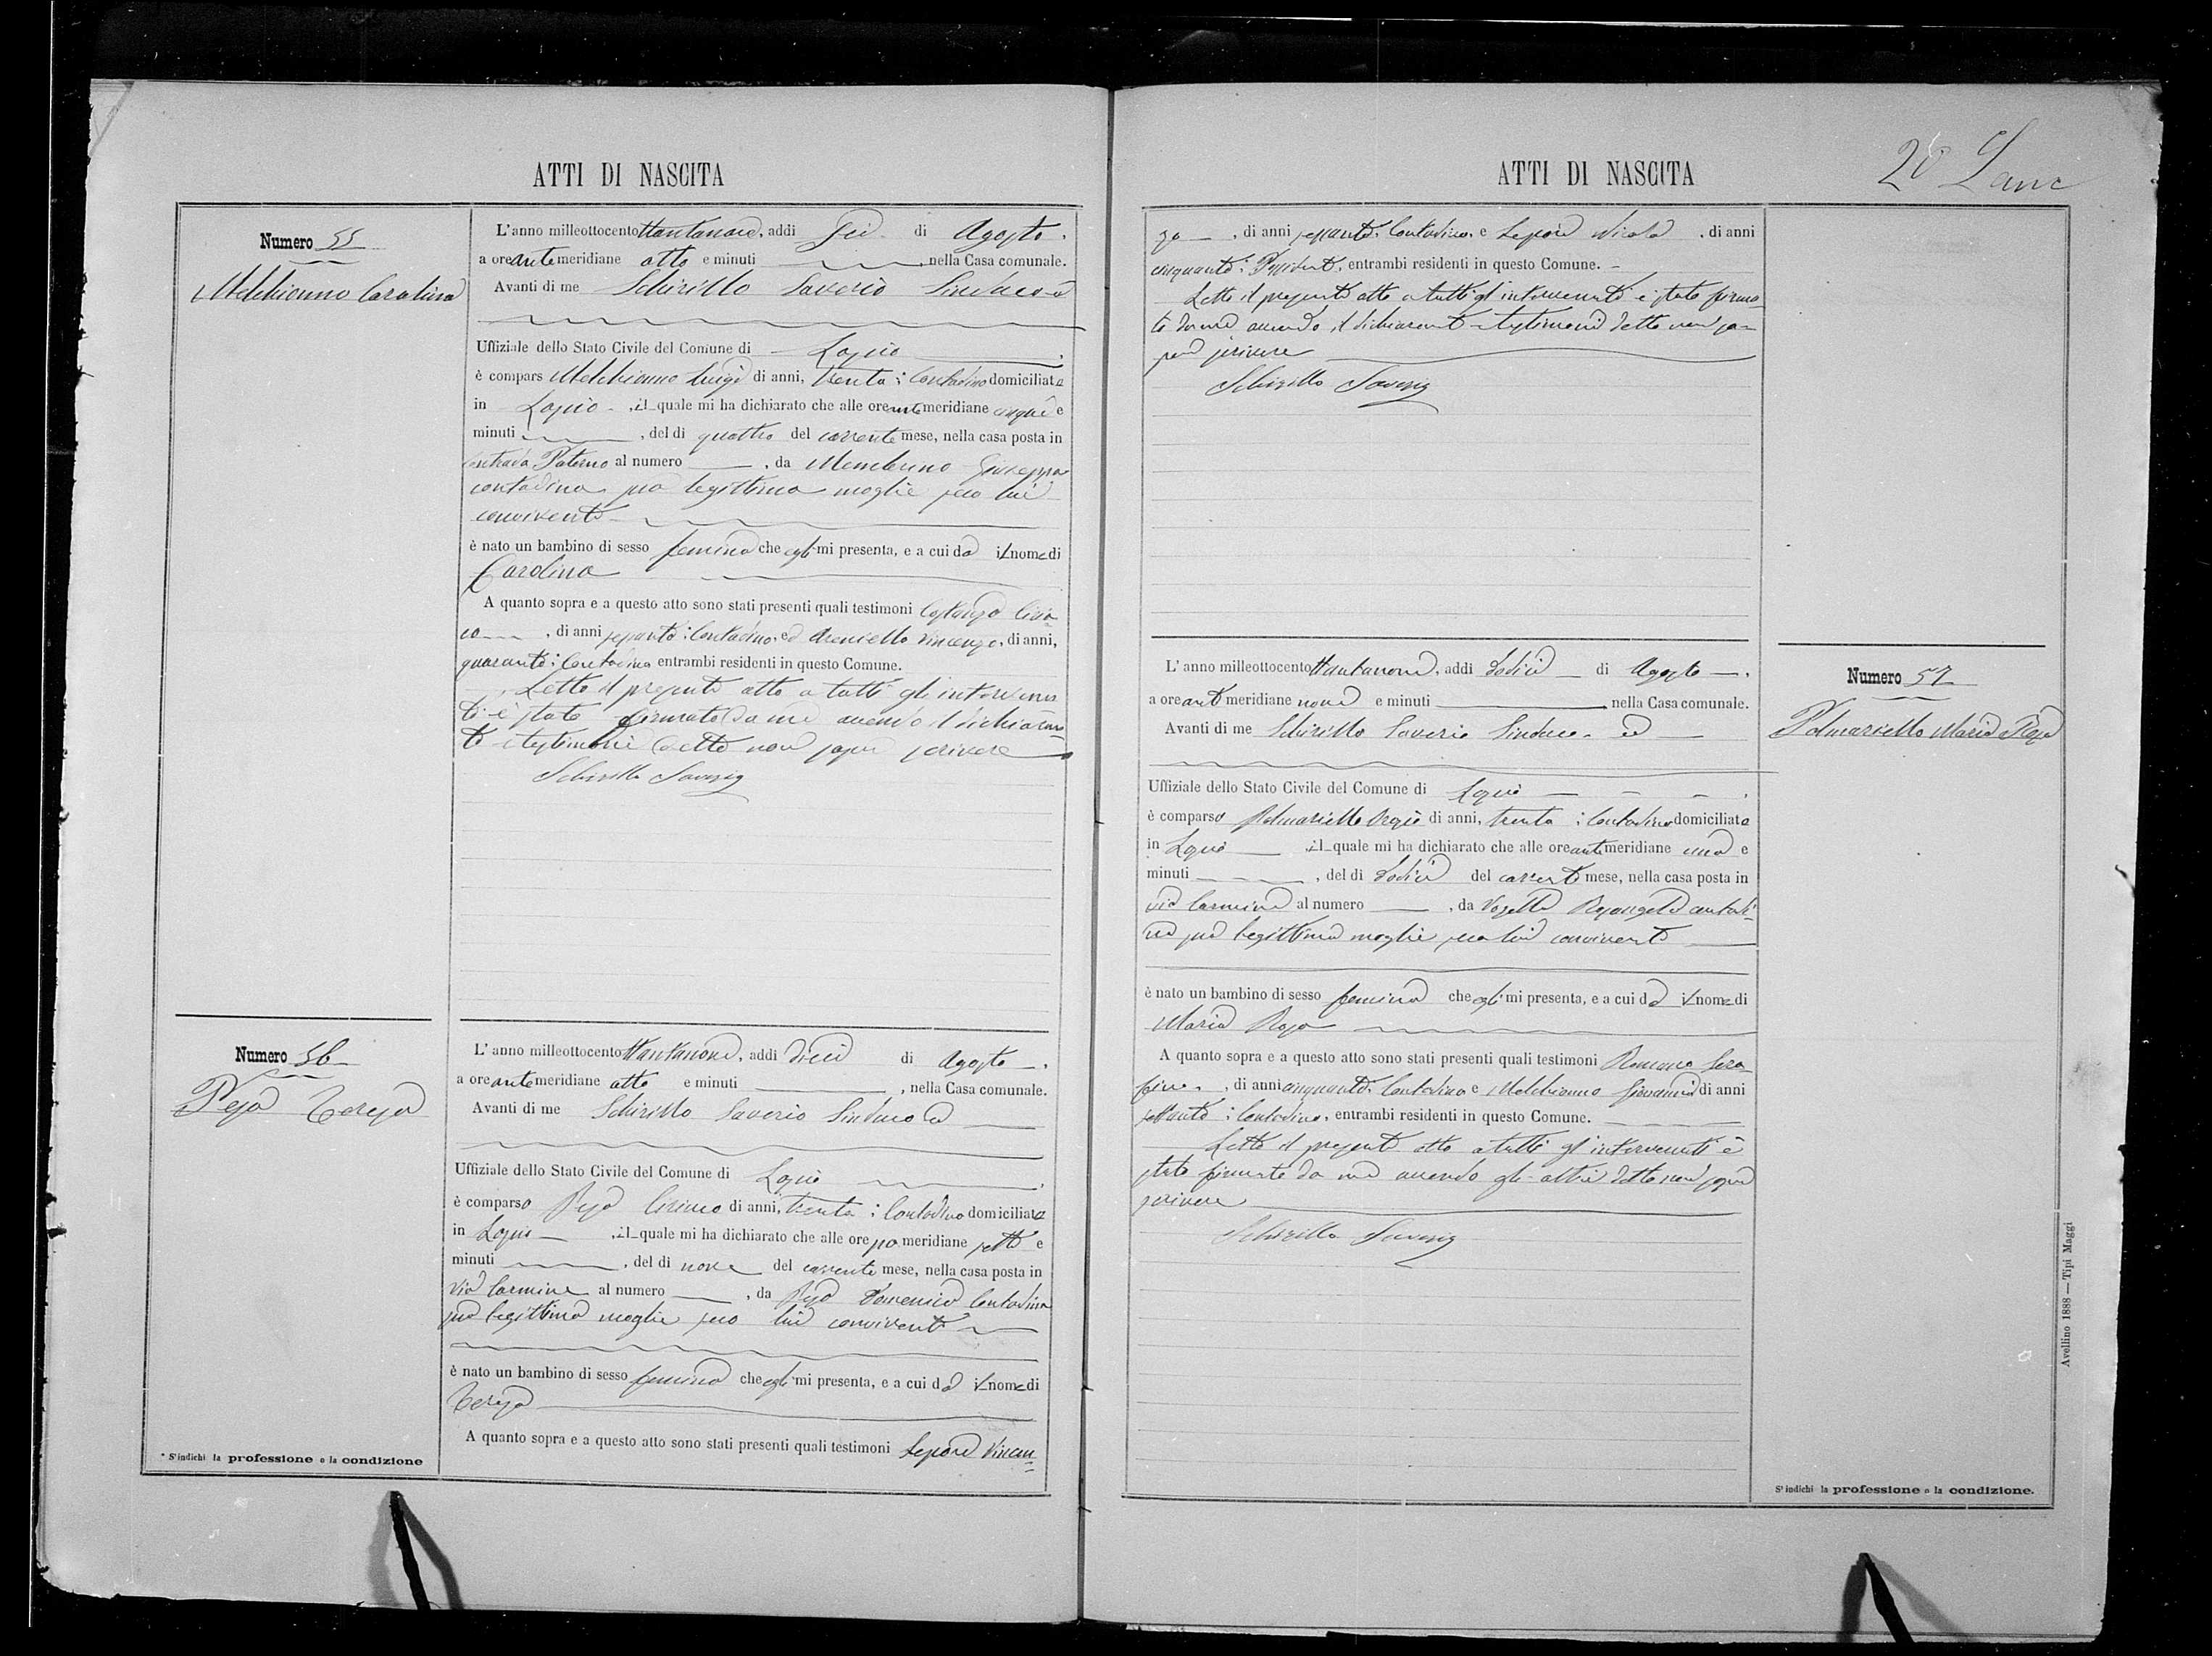 ATTI DI NASCITA
Numero 55
Melchionno Carolina
L'anno milleottocento ottantanove, addì sei di Agosto,
a ore ante meridiane otto e minuti nella Casa comunale.
Avanti di me Schirillo Saverio Sindaco
Uffiziale dello Stato Civile del Comune di Lapio
è compars Melchionno Luigi di anni, trenta; Contadino domiciliato
in Lapio, il quale mi ha dichiarato che alle ore ante meridiane cinque e
minuti, del dì quattro del corrente mese, nella casa posta in
contrada Paterno al numero, da Giuseppa
contadina sua legittima moglie seco lui
convivente
è nato un bambino di sesso femino che egli mi presenta, e a cui dà il nome di
Carolina
A quanto sopra e a questo atto sono stati presenti quali testimoni Costanzo Ciria-
co, di anni sessanta; Contadino, ed Areniello Vincenzo, di anni,
quaranta; Contadino entrambi residenti in questo Comune.
Letto il presente atto a tutti gli intervenu
ti è stato firmato da me avendo il dichiaran-
te e testimoni detto non saper scrivere
Schirillo Saverio
Numero 56
Pepa Teresa
L'anno milleottocento ottantanove, addì dieci di Agosto,
a ore ante meridiane otto e minuti, nella Casa comunale.
Avanti di me Schirillo Saverio Sindaco
Uffiziale dello Stato Civile del Comune di Lapio
è comparso Ciriaco di anni, trenta; Contadino domiciliato
in Lapio, il quale mi ha dichiarato che alle ore po meridiane sette e
minuti, del dì nove del corrente mese, nella casa posta in
Via Carmine al numero, da Domenica Contadina
sua legittima moglie seco lui convivente
è nato un bambino di sesso femino che egli mi presenta, e a cui dà il nome di
Teresa
A quanto sopra e a questo atto sono stati presenti quali testimoni Lepore Vincen
* S'indichi la professione o la condizione
ATTI DI NASCITA
20
zo, di anni sessanta, Contadino, e Lepore Nicola, di anni
cinquanta; Possidente, entrambi residenti in questo Comune.
Letto il presente atto a tutti gl'intervenuti è stato firma-
to da me avendo il dichiarante e testimoni detto non sa-
pere scrivere
Schirillo Saverio
Numero 57
Palmariello Maria Rosa
L'anno milleottocento ottantanove, addì dodici di Agosto,
a ore ant meridiane nove e minuti nella Casa comunale.
Avanti di me Schirillo Saverio Sindaco
Uffiziale dello Stato Civile del Comune di Lapio
è comparso Palmariello di anni, trenta; Contadino domiciliato
in Lapio, il quale mi ha dichiarato che alle ore ante meridiane una e
minuti, del dì dodici del corrente mese, nella casa posta in
via Carmine al numero, da Rosangela contadi-
na sua legittima moglie seco lui convivente
è nato un bambino di sesso femino che egli mi presenta, e a cui dà il nome di
Maria Rosa
A quanto sopra e a questo atto sono stati presenti quali testimoni Romano Sera-
fino, di anni cinquanta, Contadino e Melchionno Giovanni di anni
settanta; Contadino, entrambi residenti in questo Comune.
Letto il presente atto a tutti gl'intervenuti è
stato firmato da me avendo gli altri detto non sapere
scrivere
Schirillo Saverio
S'indichi la professione o la condizione.
Avellino 1888 — Tipi Maggi